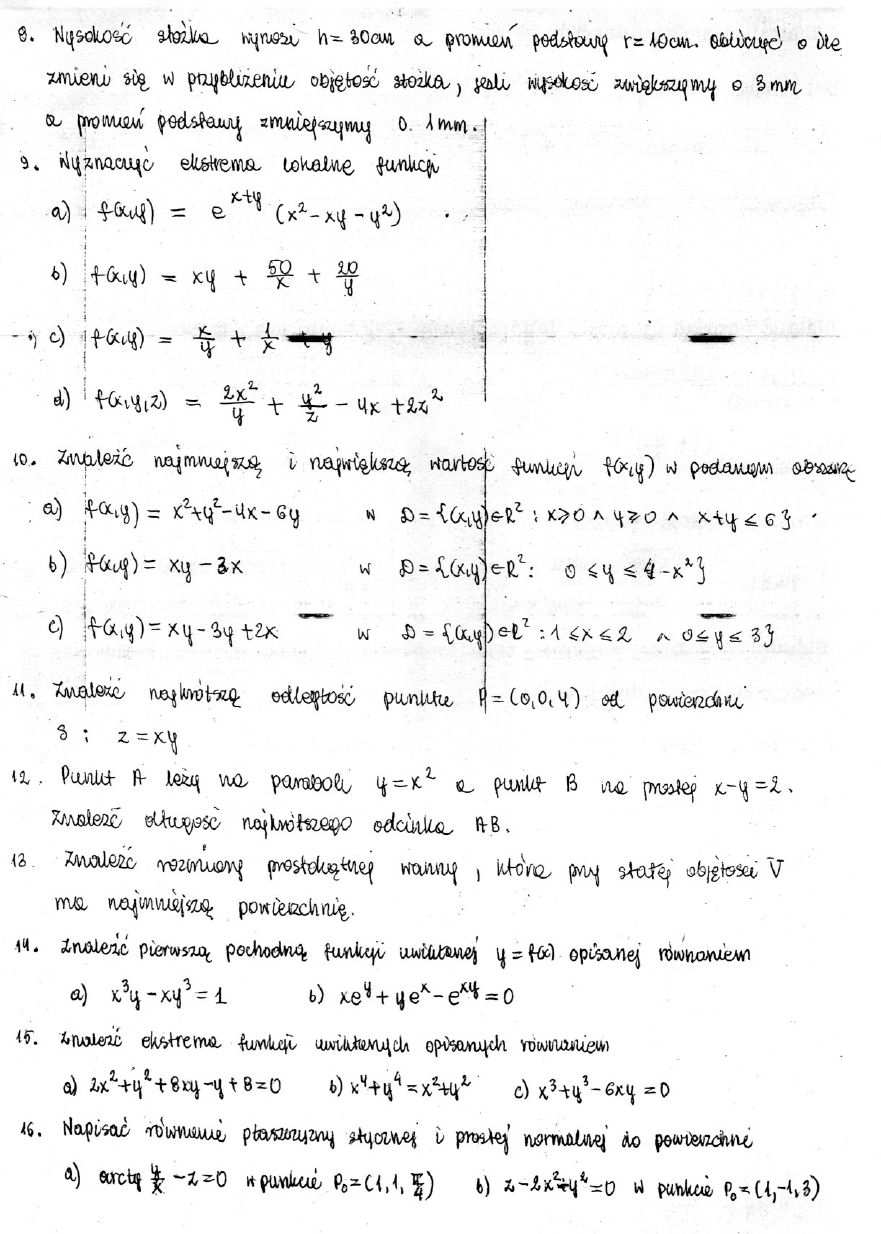 8. Wysokość stożka wynosi h=30cm a promień podstawy r=10cm. Obliczyć o ile
zmieni się w przybliżeniu objętość stożka, jeśli wysokość zwiększymy o 3mm
a promień podstawy zmniejszymy o 1mm.
9. Wyznaczyć ekstrema lokalne funkcji
a) f(x,y) = e^{x+y} (x²-xy-y²)
b) f(x,y) = xy + 50/x + 20/y
c) f(x,y) = x/y + 1/x
d) f(x,y,z) = 2x²/y + y²/z - 4x + 2z²
10. Znaleźć najmniejszą i największą wartość funkcji f(x,y) w podanym obszarze
a) f(x,y) = x²+y²-4x-6y w D={(x,y)∈R²: x≥0 ∧ y≥0 ∧ x+y≤6}
b) f(x,y) = xy-3x w D={(x,y)∈R²: 0≤y≤4-x²}
c) f(x,y) = xy-3y+2x w D={(x,y)∈R²: 1≤x≤2 ∧ 0≤y≤3}
11. Znaleźć najkrótszą odległość punktu P=(0,0,4) od powierzchni
S: z=xy
12. Punkt A leży na paraboli y=x² a punkt B na prostej x-y=2.
Znaleźć długość najkrótszego odcinka AB.
13. Znaleźć rozmiary prostokątnej wanny, która przy stałej objętości V
ma najmniejszą powierzchnię.
14. Znaleźć pierwszą pochodną funkcji uwikłanej y=f(x) opisanej równaniem
a) x³y-xy³=1 b) xe^y+ye^x-e^{xy}=0
15. Znaleźć ekstrema funkcji uwikłanych opisanych równaniem
a) 2x²+y²+8xy-y+8=0 b) x⁴+y⁴=x²+y² c) x³+y³-6xy=0
16. Napisać równanie płaszczyzny stycznej i prostej normalnej do powierzchni
a) arctg y/x -z=0 w punkcie P₀=(1,1,π/4) b) z-2x²+y²=0 w punkcie P₀=(1,-1,3)